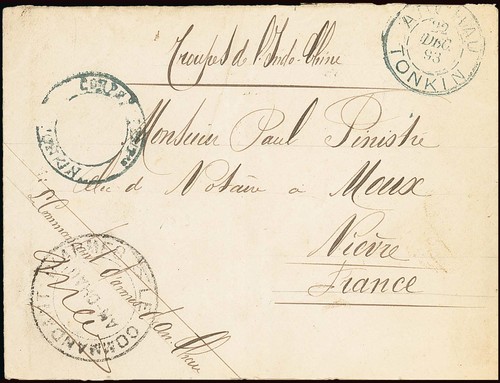 Troupes de l'Indo-Chine
AN-CHAU
22
DEC.
93
TONKIN
CORP.
Monsieur Paul Pinistre
de Notaire à Moux
Nièvre
France
Le Commandant d'armes
An-Chau
LE COMMANDANT D'ARMES
AN-CHAU